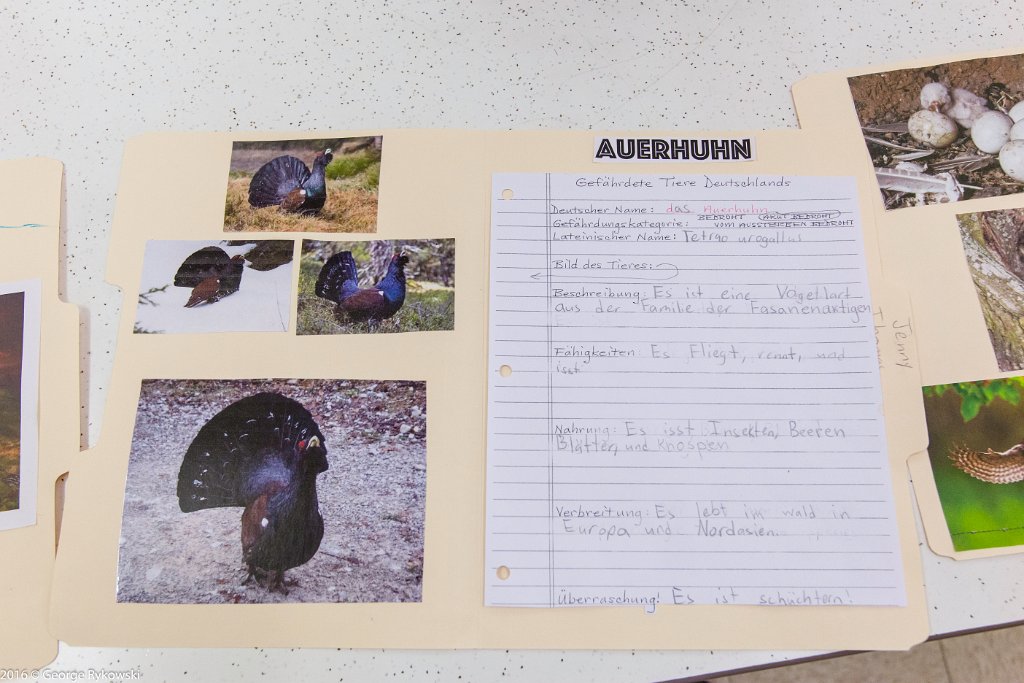 AUERHUHN
Gefährdete Tiere Deutschlands
Deutscher Name: das Auerhuhn
BEDROHT AKUT BEDROHT
Gefährdungskategorie: VOM AUSSTERBEN BEDROHT
Lateinischer Name: Tetrao urogallus
Bild des Tieres:
Beschreibung: Es ist eine Vogelart
aus der Familie der Fasanenartigen
Fähigkeiten: Es Fliegt, rennt, und
isst
Nahrung: Es isst Insekten, Beeren
Blätter, und Knospen
Verbreitung: Es lebt im wald in
Europa und Nordasien
Überraschung! Es ist schüchtern!
Jenny
2016 © George Rykowski